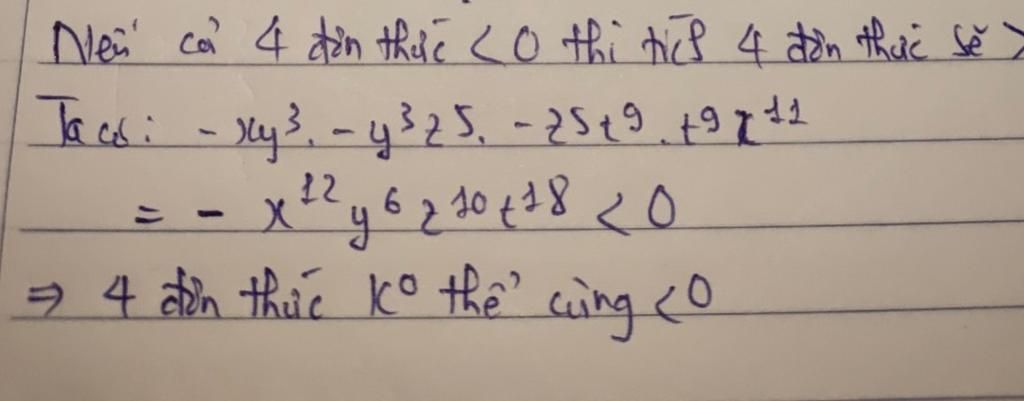 Nếu cả 4 đơn thức < 0 thì tích 4 đơn thức sẽ >
Ta có: - xy³. - y³z⁵. - z⁵t⁹. t⁹x¹¹
= - x¹²y⁶z¹⁰t¹⁸ < 0
⇒ 4 đơn thức k⁰ thể cùng < 0